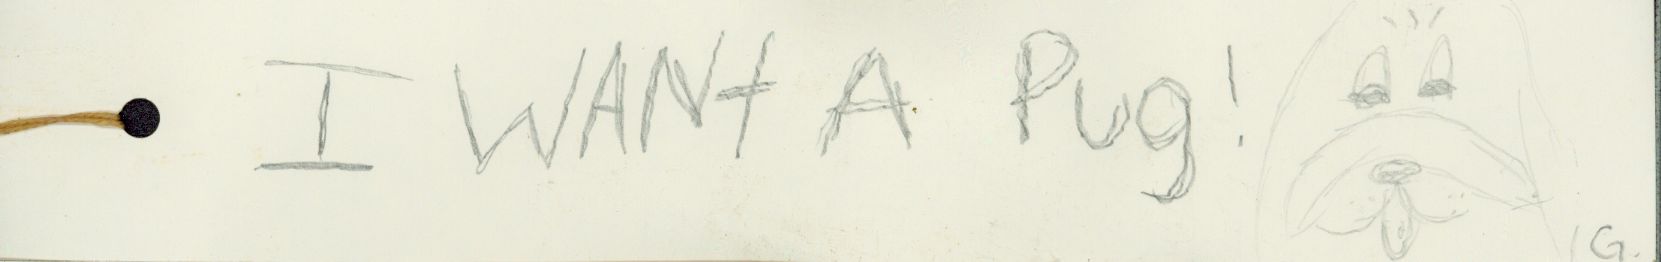 I WANt A Pug!
G.